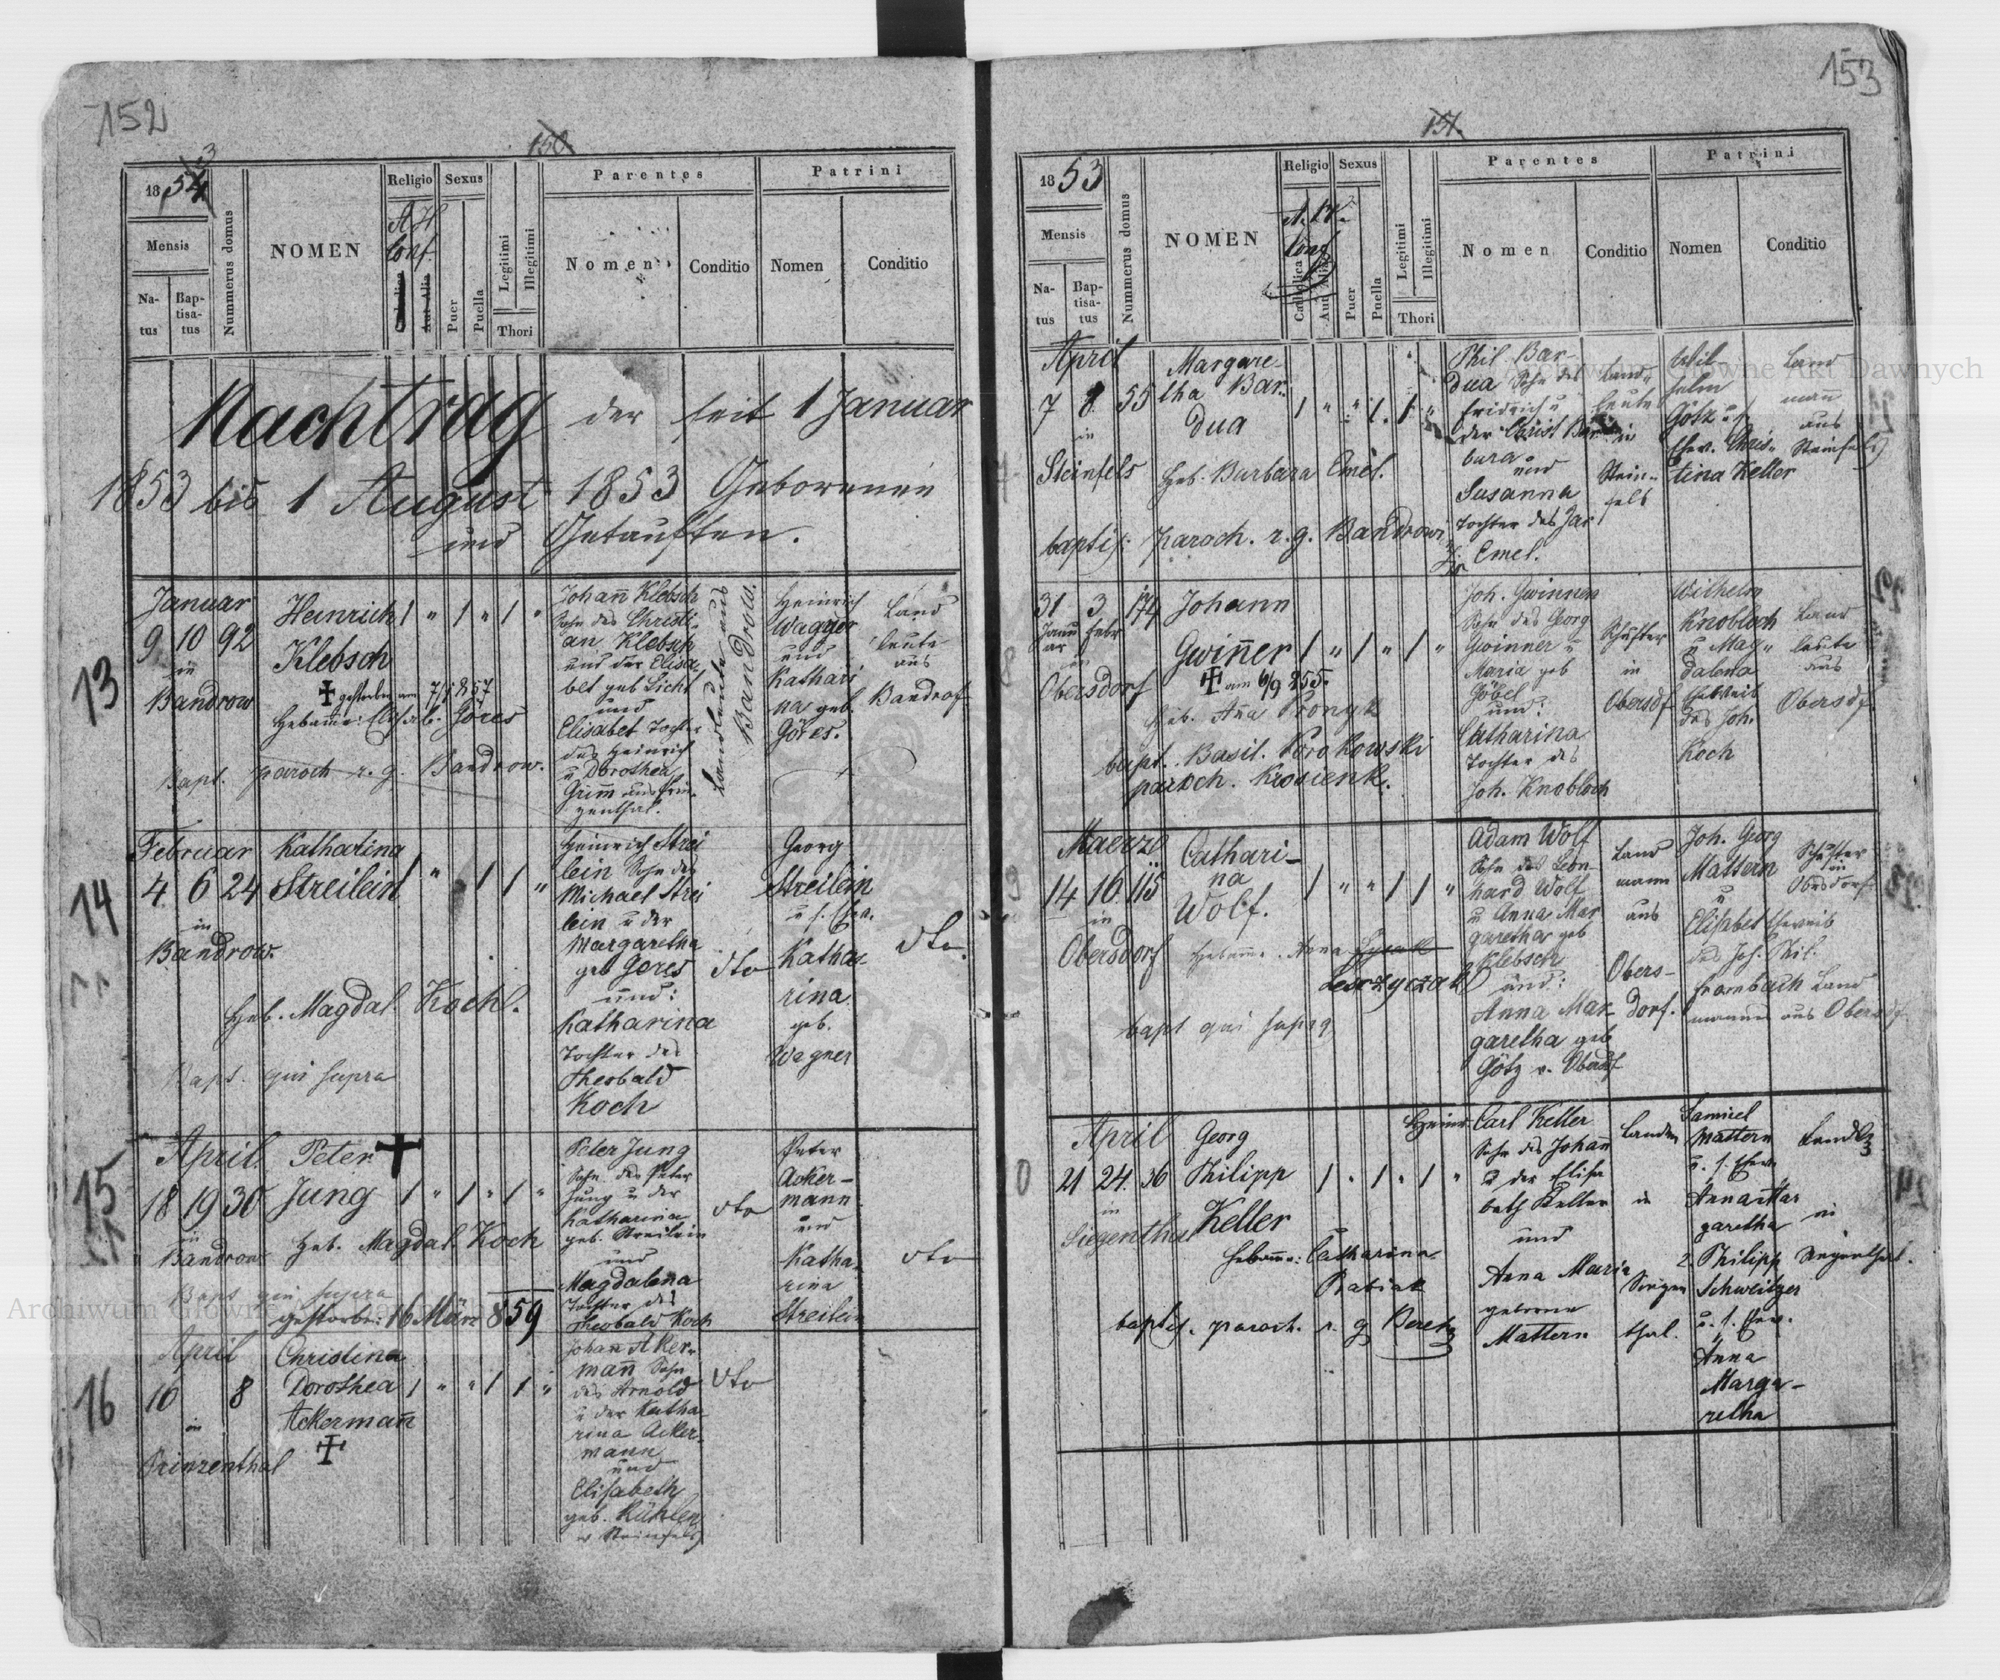 152
150
1853
Mensis
Natus
Baptisatus
Nummerus domus
NOMEN
Religio
A. H.
Conf.
Aut Alia
Sexus
Puer
Puella
Legitimi
Illegitimi
Thori
Parentes
Nomen
Conditio
Patrini
Nomen
Conditio
Nachtrag der seit 1 Januar
1853 bis 1 August 1853 Geborenen
und Getauften.
13
Januar
9 10 92
in
Bandrow
Heinrich 1 " 1 " 1 "
Klebsch
✝ gestorben am
Hebamme: Elisab. Göres
Bapt. paroch r. g. Bandrow.
Johann Klebsch
Sohn des Christi-
an Klebsch
und der Elisa
bet geb Licht
und
Elisabet Tochter
des Heinrich
u Dorothea
Grimm aus Prin-
zenthal.
Landleute aus
Bandrow.
Heinrich
Wagner
und
Kathari
na geb.
Göres.
Land
leute
aus
Bandrof
14
Februar
4 6 24
in
Bandrow.
Katharina
Streilein
1 " 1 1 "
Heb. Magdal. Koch.
Bapt. qui supra
Heinrich Strei
lein Sohn des
Michael Strei
lein u der
Margaretha
geb Gores
und:
Katharina
Tochter des
Theobald
Koch
dto
Georg
Streilein
u s. Ehew.
Katha-
rina
geb.
Wagner
dto.
15
April
18 19 30
in
Bandrow
Peter ✝
Jung 1 " 1 " 1 "
Heb. Magdal. Koch
Bapt qui supra
gestorben 16 März 859
Peter Jung
Sohn des Peter
Jung u der
Katharina
geb. Streilein
und
Magdalena
Tochter des
Theobald Koch
dto
Peter
Acker-
mann
und
Katha-
rina
Streilein
dto
16
April
10 8
in
Prinzenthal
Christina
Dorothea 1 " " 1 1 "
Ackermann
✝
Johann Aker-
mann Sohn
des Arnold
u der Katha-
rina Acker-
mann
und
Elisabeth
geb. Kühlen
v Steinfels
dto
153
151.
1853
Mensis
Natus
Baptisatus
Nummerus domus
NOMEN
Religio
A. H.
Conf
Catholica
Aut Alia
Sexus
Puer
Puella
Legitimi
Illegitimi
Thori
Parentes
Nomen
Conditio
Patrini
Nomen
Conditio
April
7 8 55
in
Steinfels
Margare-
tha Bar-
dua
1 " " 1 1 "
Heb. Barbara Emel.
baptis: paroch. r. g. Bandrow
Phil Bar-
dua Sohn des
Fridrich u
der Christ Bar
bara
und
Susanna
Tochter des Jac
Emel.
Land-
leute
in
Stein-
fels
Wil
helm
Götz u
Ehew. Chris-
tina Keller
Land
mann
aus
Steinfels
31 3 174
Janu Febr
ar
in
Obersdorf
Johann
Gwinner 1 " 1 " 1 "
✝ am 6/9 855.
Heb. Anna Pronyk
bapt. Basil. Korokowski
paroch. Krosienk.
Joh. Gwinner
Sohn des Georg
Gwinner u
Maria geb
Göbel
und:
Catharina
Tochter des
Joh. Knobloch
Schuster
in
Obersdf
Wilhelm
Knobloch
u Mag-
dalena
Eheweib
des Joh.
Koch
Land
leute
aus
Obersdf.
Maerz
14 16 115
in
Obersdorf
Cathari-
na
Wolf.
1 " " 1 1 "
Hebamme. Anna
bapt qui supra
Adam Wolf
Sohn des Leon
hard Wolf
u Anna Mar
garetha geb
Klebsch
und:
Anna Mar
garetha geb
Götz v. Obersdf
Land
mann
aus
Obers-
dorf.
Joh. Georg
Mattern
u
Elisabet Eheweib
des Joh. Phil.
Frombach Land
mannes aus Obersdf
Schuster
in
Obersdorf
April
21 24. 36
in
Siegenthal
Georg
Philipp 1 " 1 " 1 "
Keller
Hebamme: Catharina
Babiak
baptis. paroch. r. g
Heinr. Carl Keller
Sohn des Johann
u der Elisa
beth Keller
und
Anna Maria
geborene
Mattern
Landm
in
Siegen
thal.
Samuel
Mattern
u. s. Ehew
Anna Mar
garetha
2. Philipp
Schweitzer
u. s. Ehew.
Anna
Marga-
retha
in
Siegenthal.
Archiwum Główne Akt Dawnych
Archiwum Główne Akt Dawnych